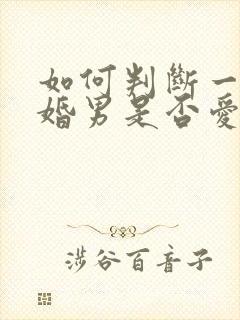 如何判斷一
婚男是否愛
涉谷百音子